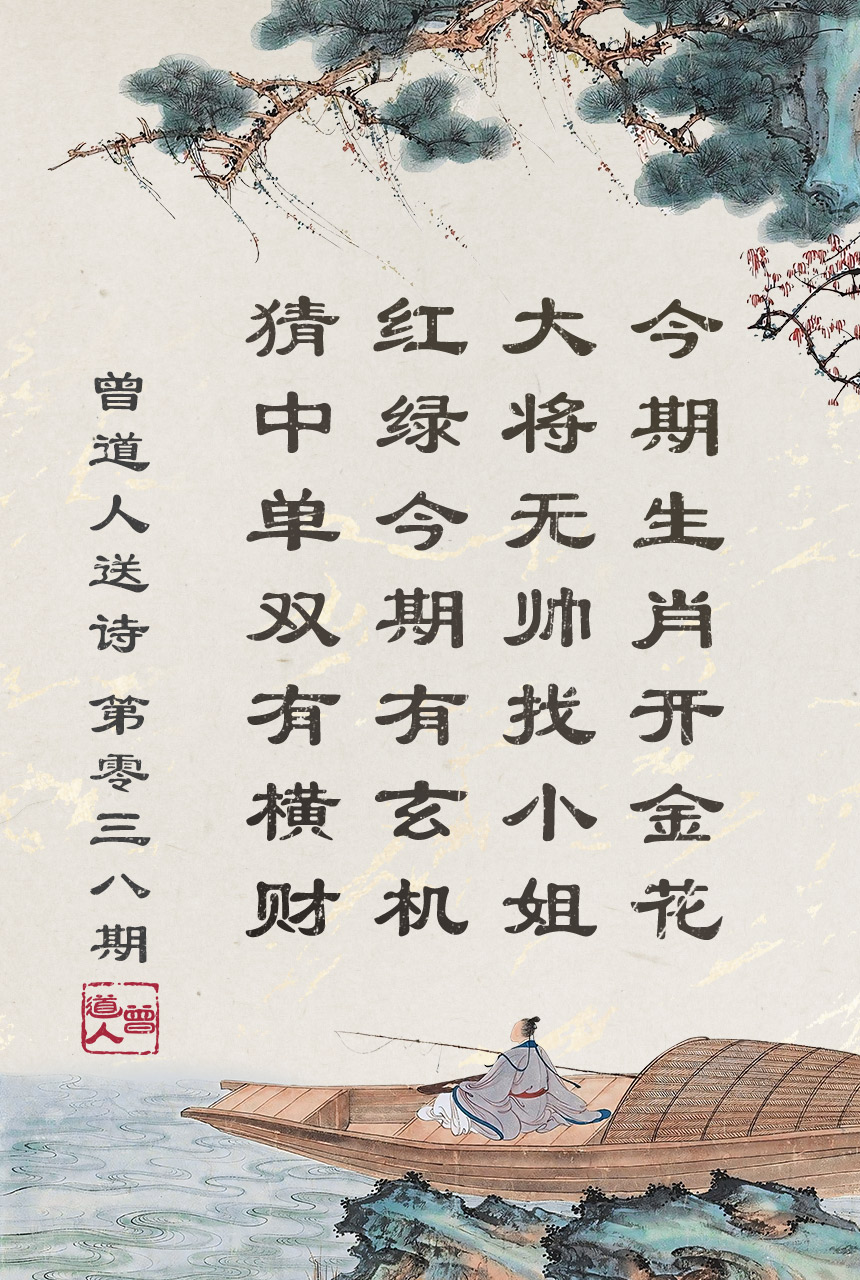 今期生肖开金花
大将无帅找小姐
红绿今期有玄机
猜中单双有横财
曾道人送诗 第零三八期
曾道人